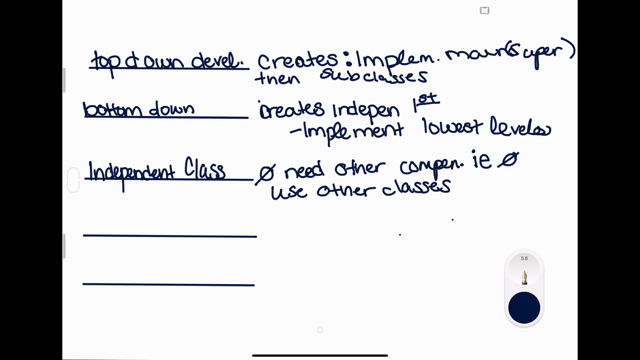 top down devel. creates: Implem. main(super)
then subclasses
bottom down creates indepen 1st
-Implement lowest levels
Independent Class Ø need other compon. ie Ø
use other classes
0.6